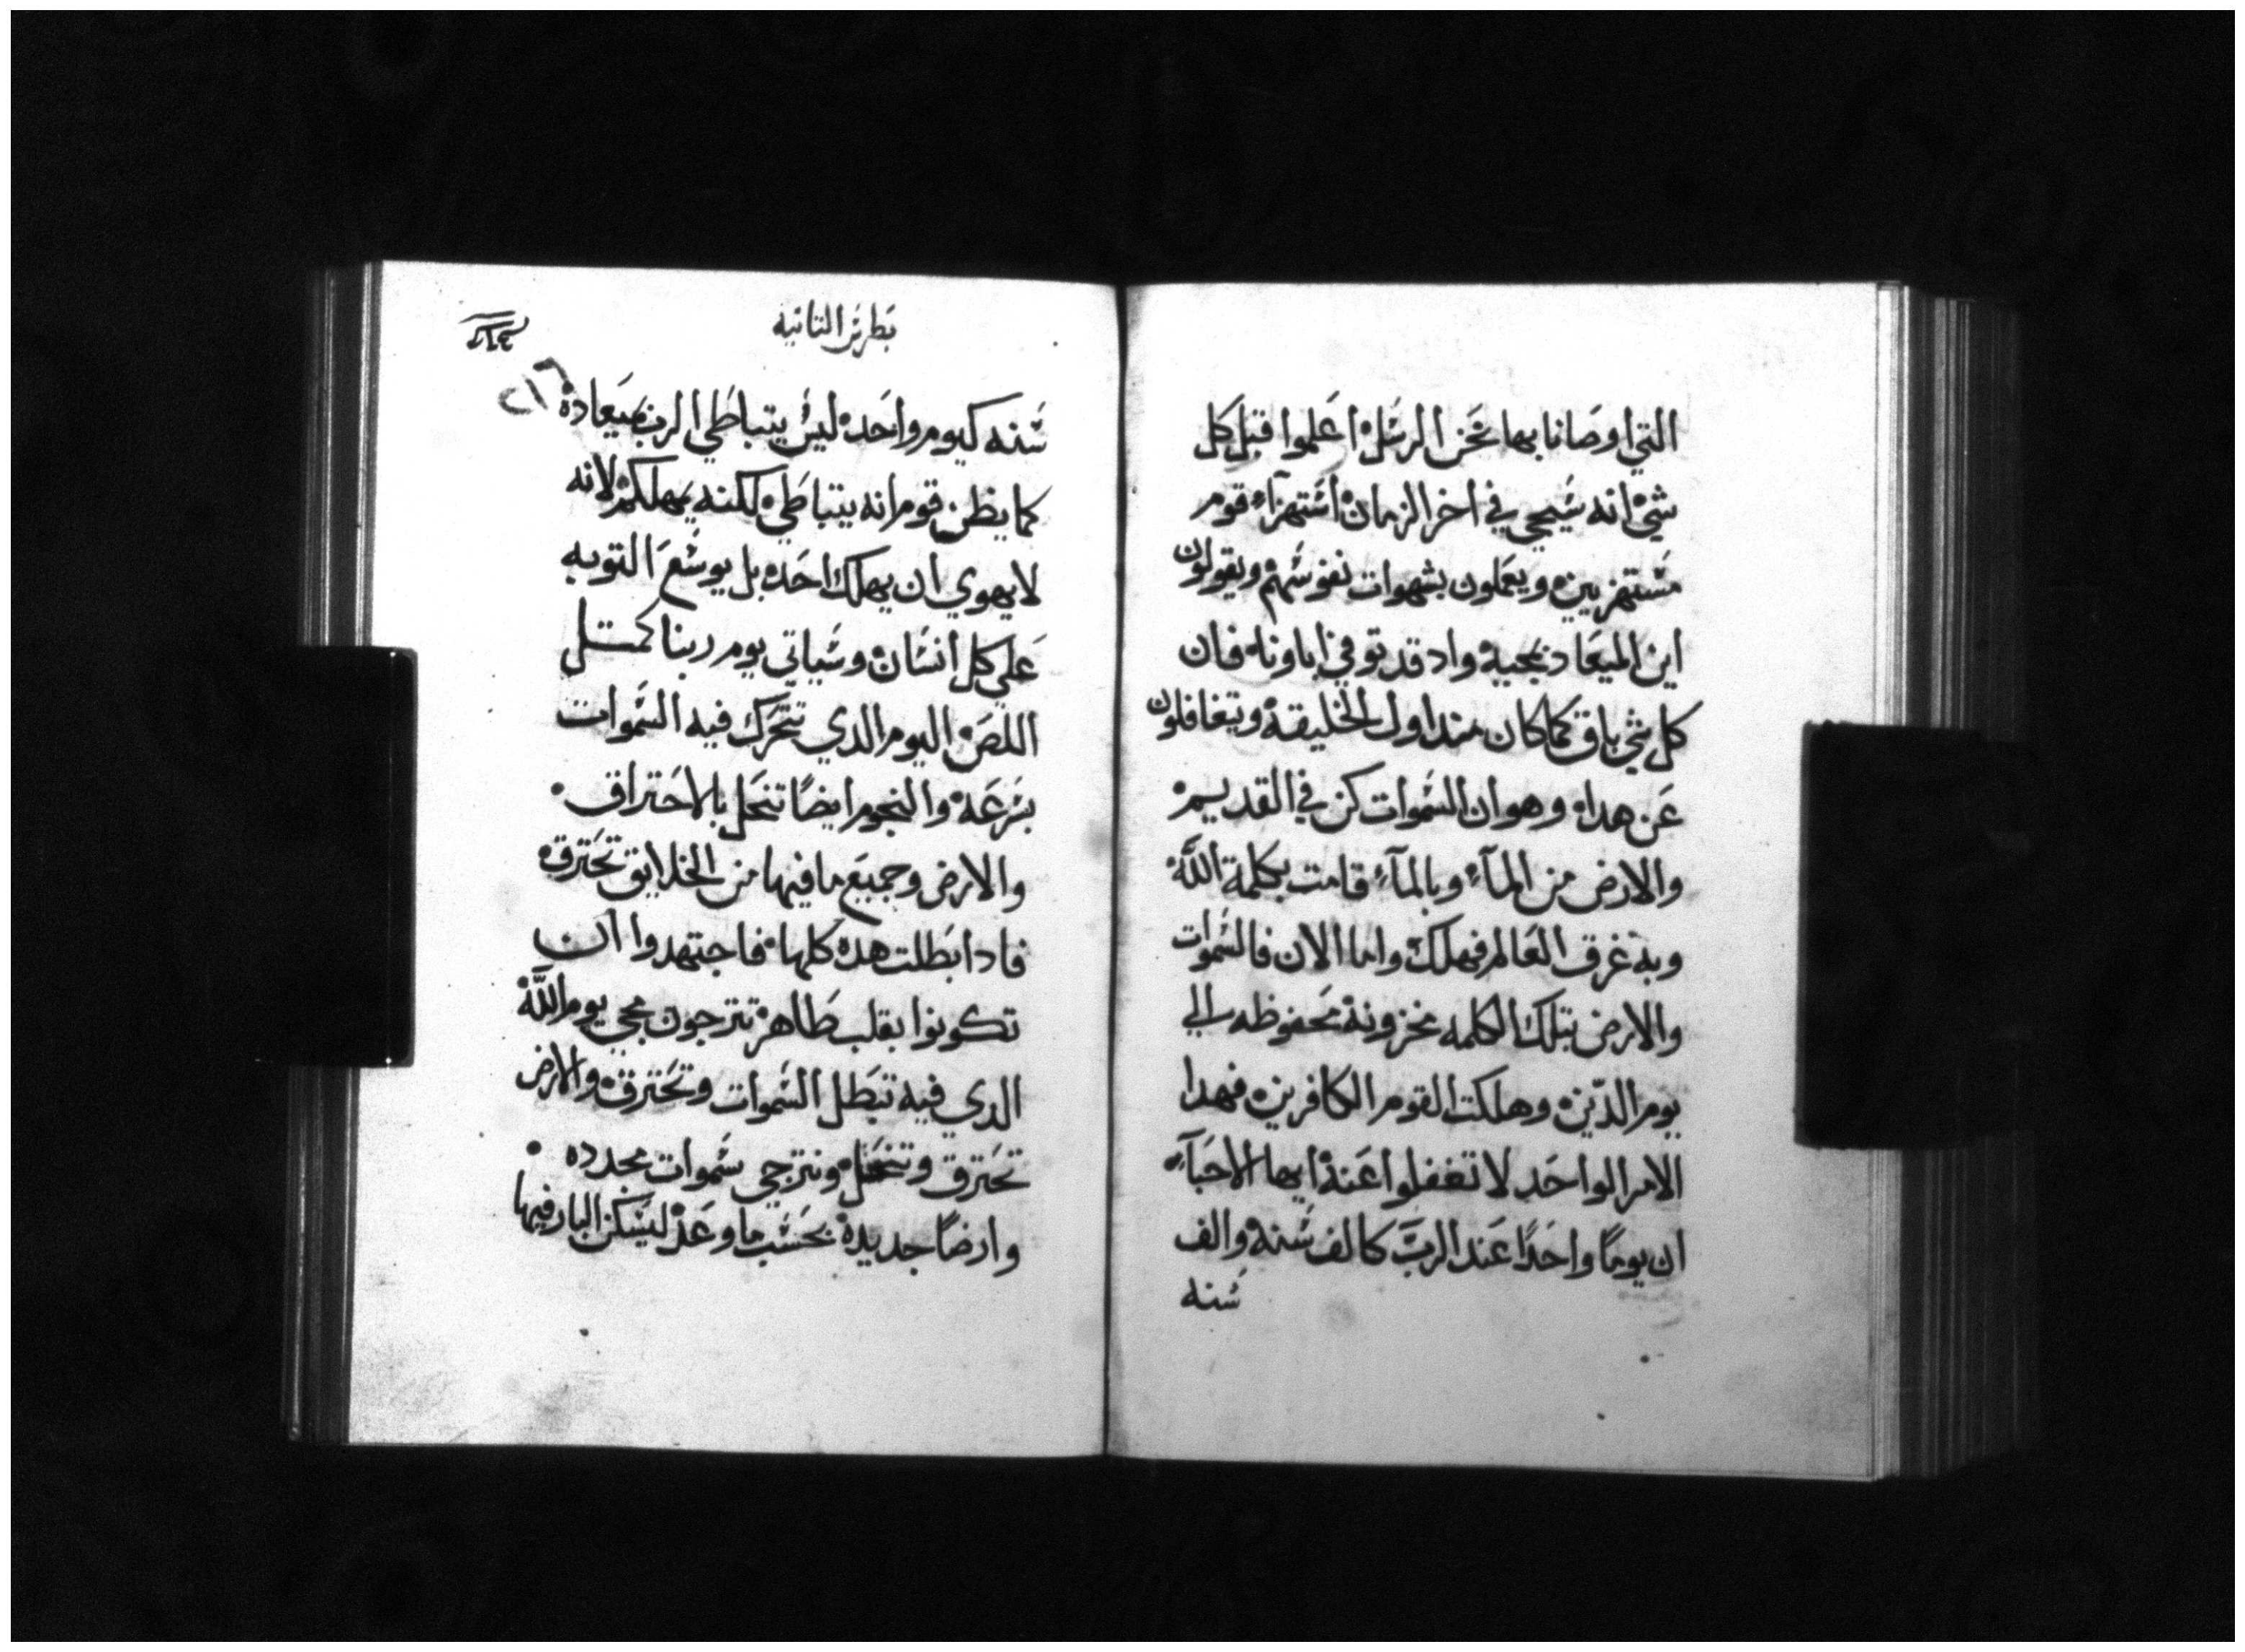 التي اوصانا بها نحن الرسل اعلموا قبل كل
شي انه سيجي في اخر الزمان استهزآء قوم
مستهزيين ويعملون بشهوات نفوسهم ويقولون
اين الميعاد بمجيه واد قد توفي اباونا فان
كل شي باق كما كان مند اول الخليقة ويتغافلون
عن هدا وهو ان السموات كن في القديم
والارض من المآء وبالمآء قامت بكلمة الله
وبه غرق العالم فهلك واما الان فالسموات
والارض بتلك الكلمه مخزونة محفوظه الي
يوم الدين وهلكت القوم الكافرين فهدا
الامر الواحد لا تغفلوا عنه ايها الاحبآء
ان يومًا واحدًا عند الرب كالف سنه والف
سنه
بطرس التانيه
٢١٦
سنه كيوم واحد ليس يتباطي الرب بميعاده
كما يظن قوم انه يتباطي لكنه يمهلكم لانه
لا يهوي ان يهلك احد بل يوسع التوبه
علي كل انسان وسياتي يوم ربنا كمتل
اللص اليوم الدي تتحرك فيه السموات
بسرعة والنجوم ايضًا تنحل بالاحتراق
والارض وجميع ما فيها من الخلايق تحترق
فادا بطلت هده كلها فاجتهدوا ان
تكونوا بقلب طاهر تترجون مجي يوم الله
الدي فيه تبطل السموات وتحترق والارض
تحترق وتنحل ونترجي سموات مجدده
وارضًا جديدة بحسب ما وعد ليسكن البار فيها